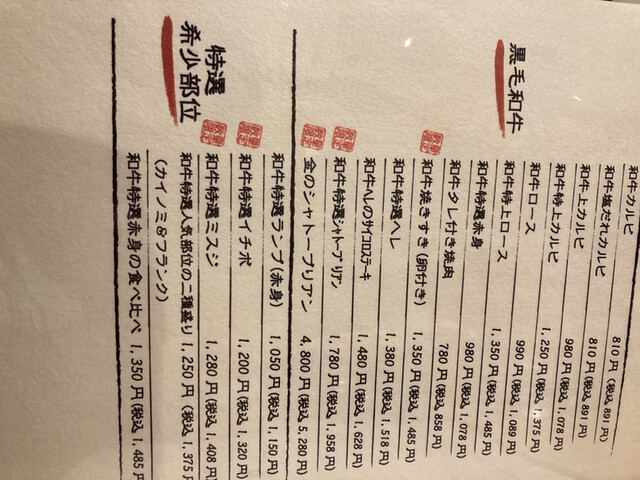 黒毛和牛
和牛カルビ 810円(税込891円)
和牛塩だれカルビ 810円(税込891円)
和牛上カルビ 980円(税込1,078円)
和牛特上カルビ 1,250円(税込1,375円)
和牛ロース 990円(税込1,089円)
和牛特上ロース 1,350円(税込1,485円)
和牛特選赤身 980円(税込1,078円)
和牛タレ付き焼肉 780円(税込858円)
和牛焼きすき(卵付き) 1,350円(税込1,485円)
和牛特選ヘレ 1,380円(税込1,518円)
和牛ヘレのサイコロステーキ 1,480円(税込1,628円)
和牛特選シャトーブリアン 1,780円(税込1,958円)
金のシャトーブリアン 4,800円(税込5,280円)
特選
希少部位
和牛特選ランプ(赤身) 1,050円(税込1,150円)
和牛特選イチボ 1,200円(税込1,320円)
和牛特選ミスジ 1,280円(税込1,408円)
和牛特選人気部位の二種盛り 1,250円(税込1,375円
(カイノミ&フランク)
和牛特選赤身の食べ比べ 1,350円(税込1,485円